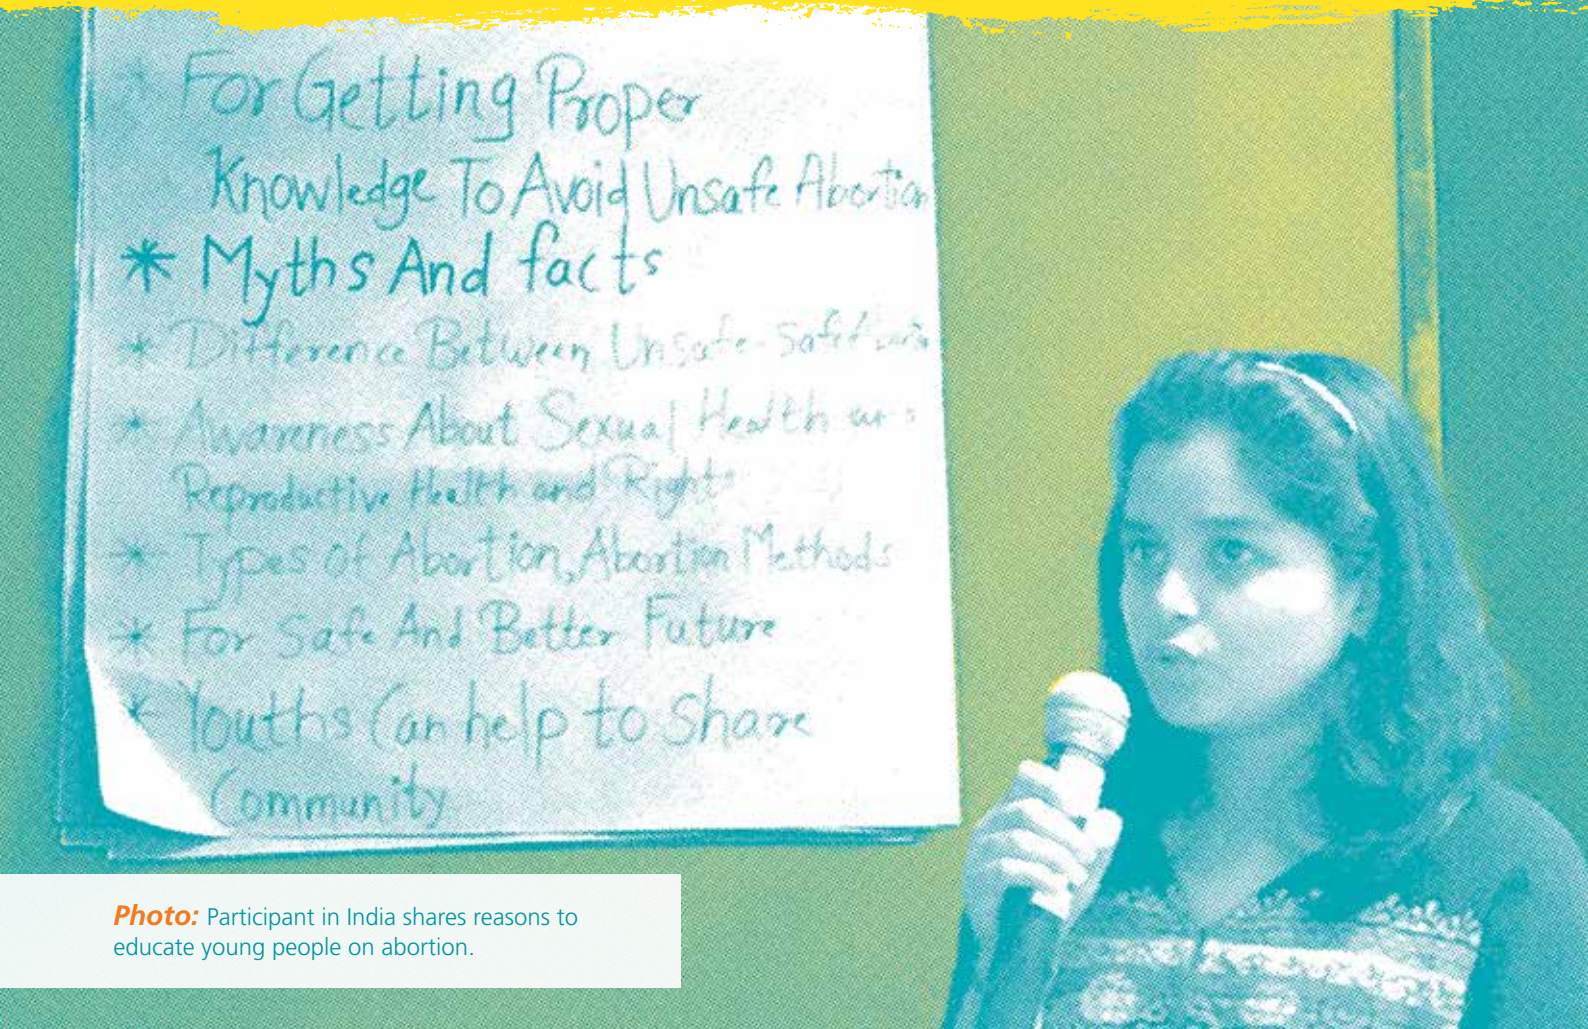 * For Getting Proper
Knowledge To Avoid Unsafe Abortion
* Myths And facts
* Difference Between Unsafe-Safe
* Awareness About Sexual Health
Reproductive Health and Right
* Types of Abortion, Abortion Methods
* For Safe And Better Future
* Youths Can help to Share
Community
Photo: Participant in India shares reasons to
educate young people on abortion.